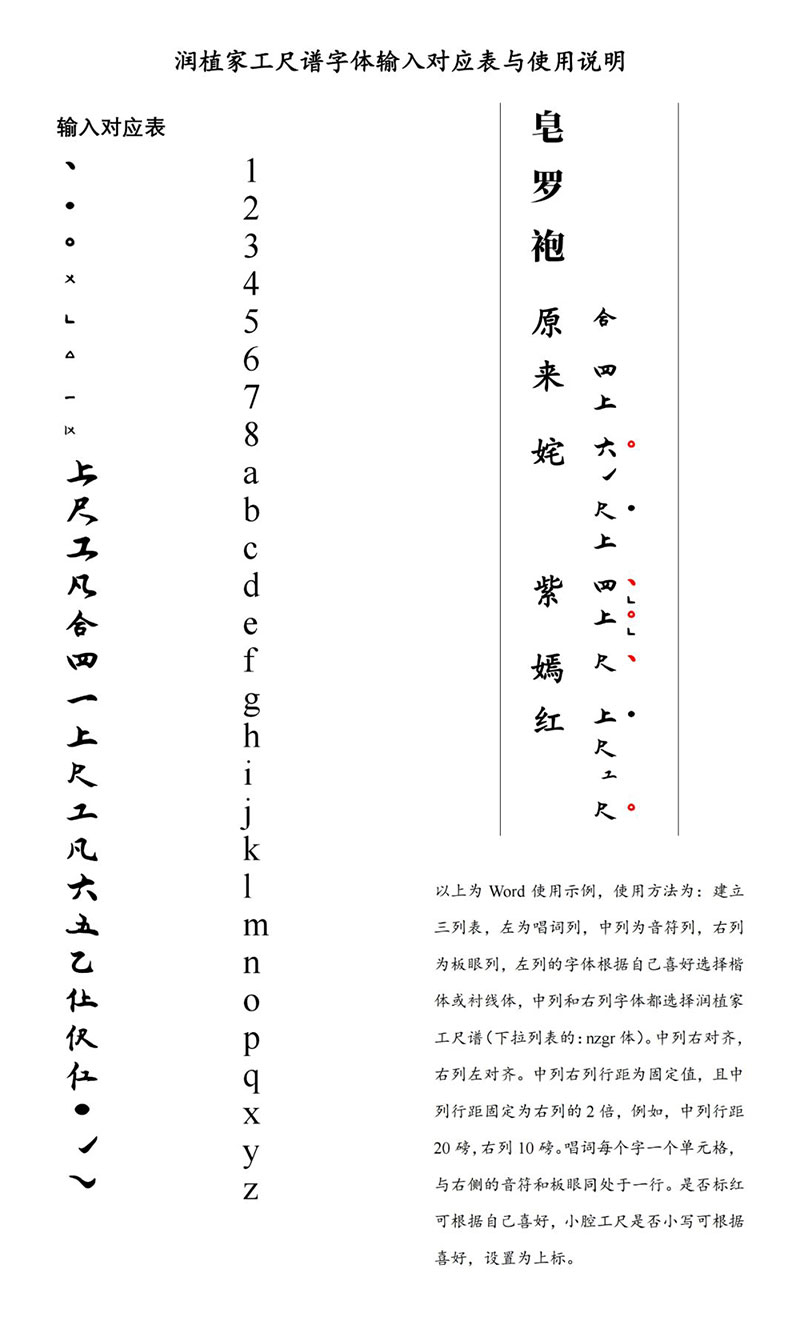 润植家工尺谱字体输入对应表与使用说明
输入对应表
、 1
• 2
○ 3
× 4
∟ 5
△ 6
一 7
8
上 a
尺 b
工 c
凡 d
合 e
四 f
一 g
上 h
尺 i
工 j
凡 k
六 l
五 m
乙 n
仩 o
伬 p
仜 q
• x
y
z
皂罗袍
原 合
来 四上
姹 六○尺•上
紫 四、∟上○∟
嫣 尺、
红 上•尺工尺○
以上为 Word 使用示例，使用方法为：建立
三列表，左为唱词列，中列为音符列，右列
为板眼列，左列的字体根据自己喜好选择楷
体或衬线体，中列和右列字体都选择润植家
工尺谱（下拉列表的：nzgr 体）。中列右对齐，
右列左对齐。中列右列行距为固定值，且中
列行距固定为右列的 2 倍，例如，中列行距
20 磅，右列 10 磅。唱词每个字一个单元格，
与右侧的音符和板眼同处于一行。是否标红
可根据自己喜好，小腔工尺是否小写可根据
喜好，设置为上标。